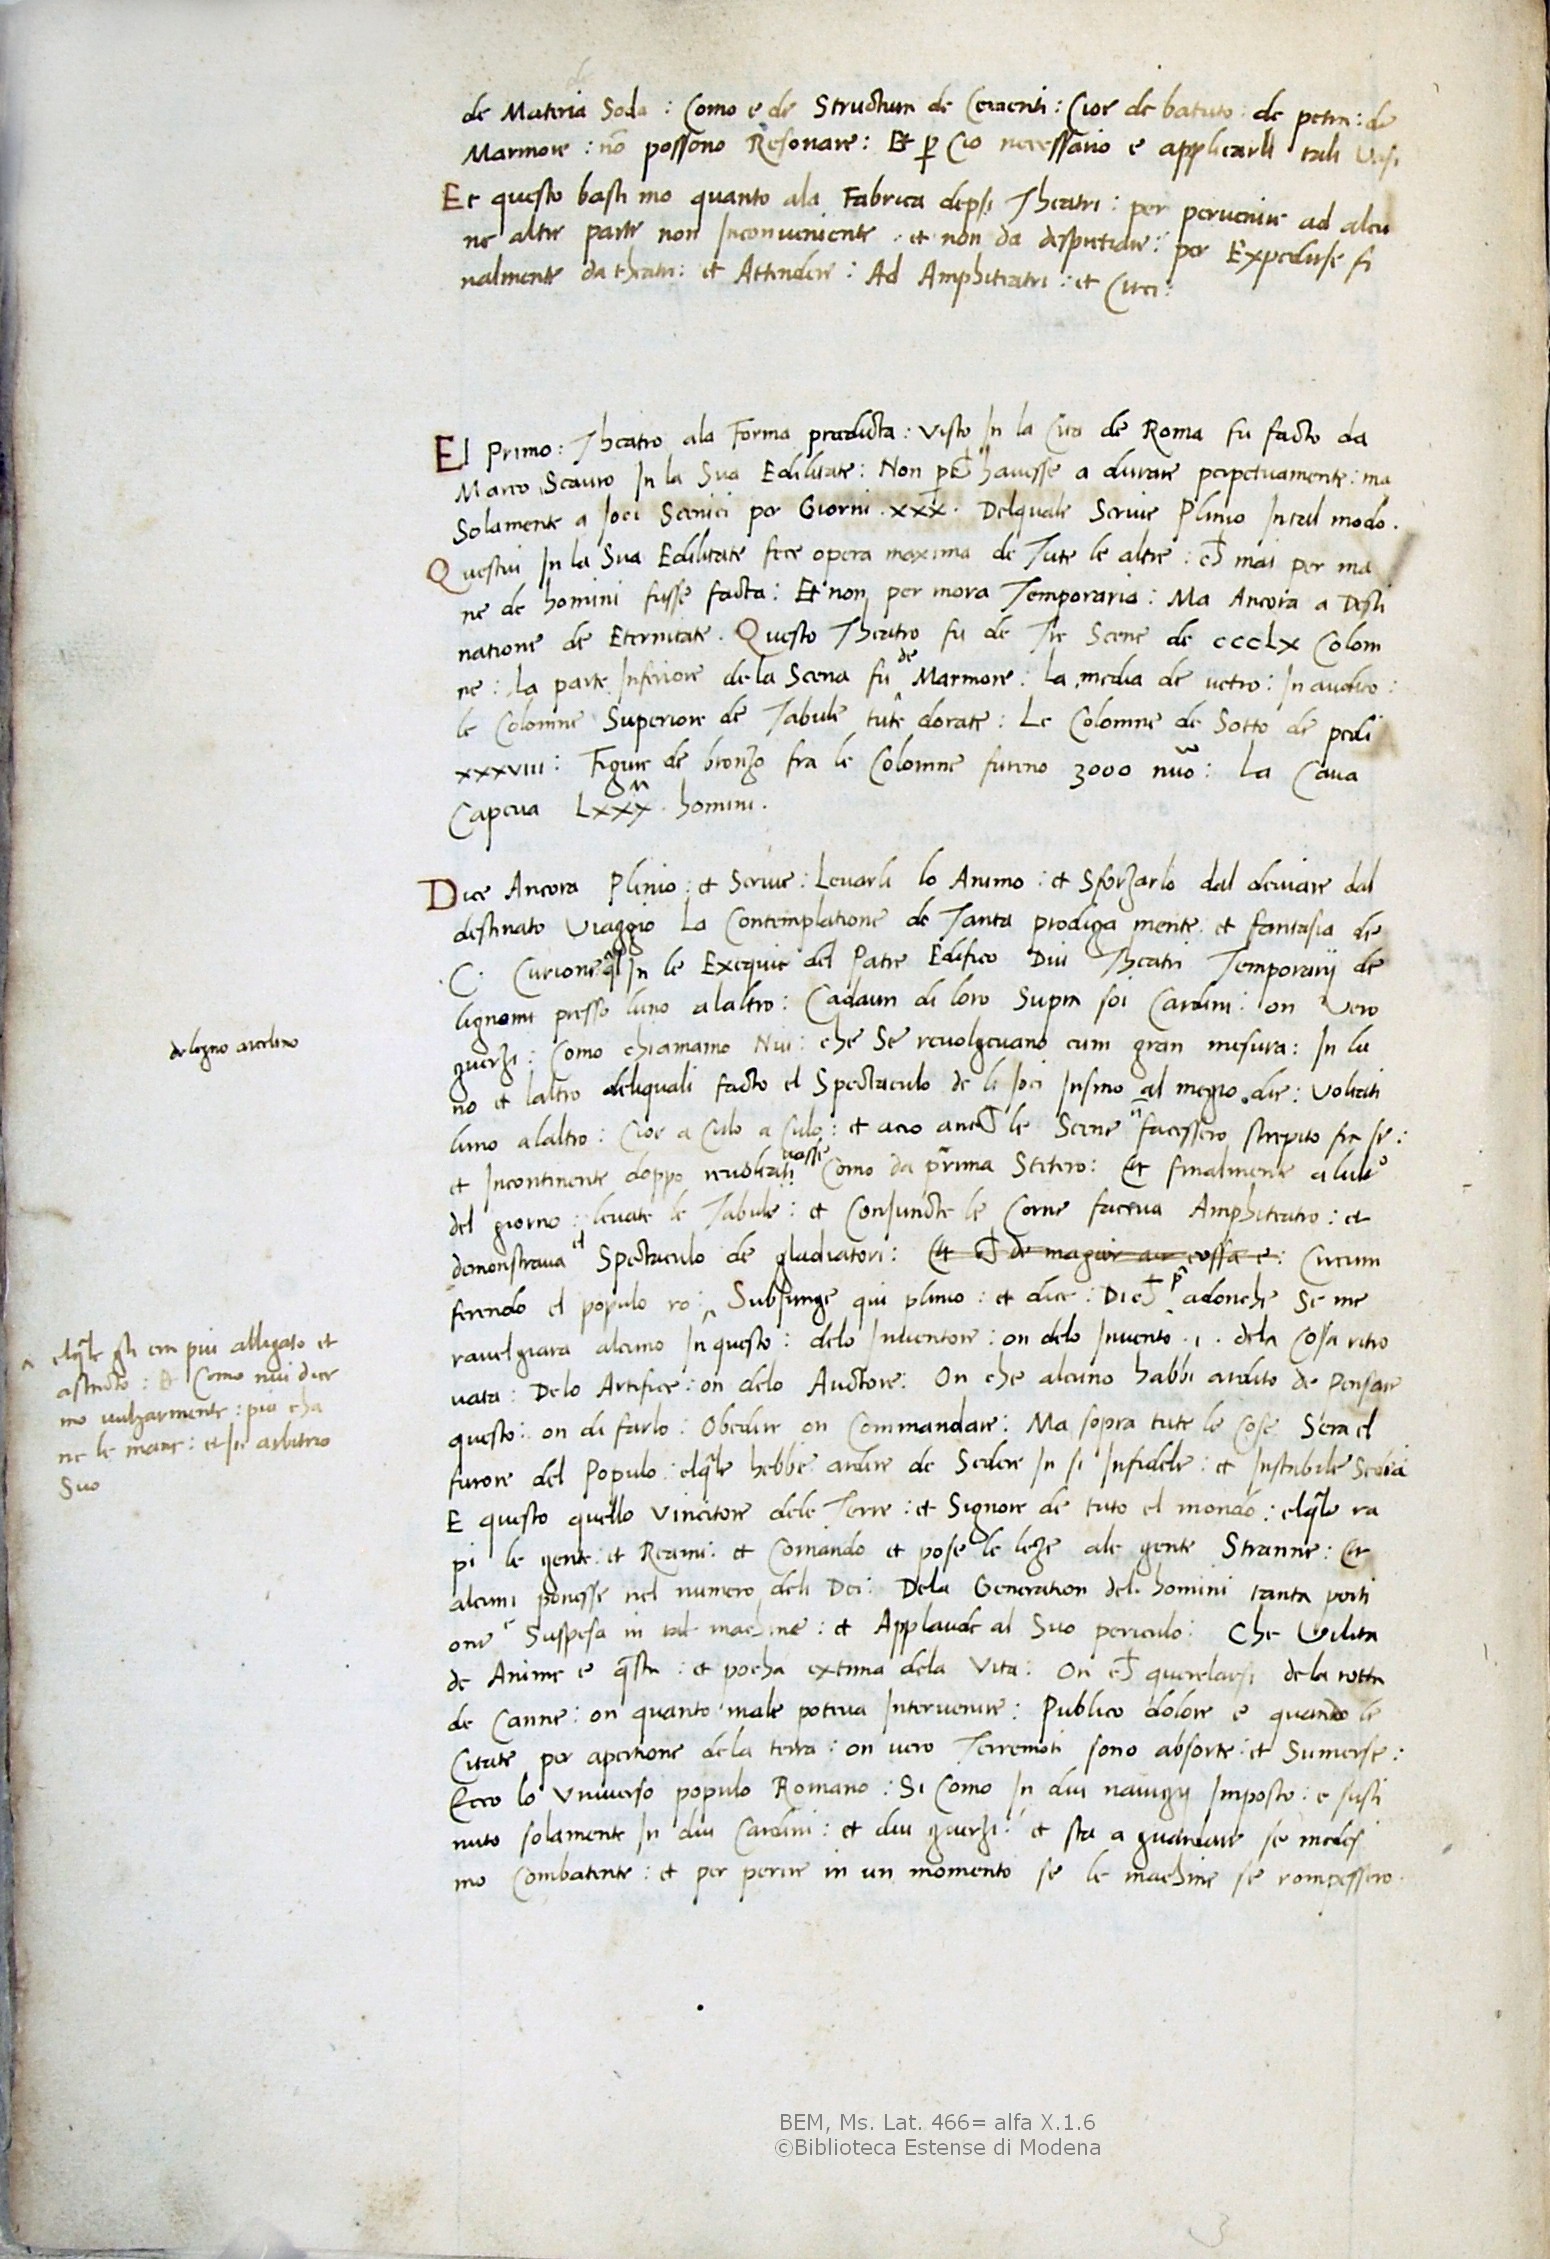 de Materia Soda : Como e de Structura de Cementi : Cioe de batuto : de petra : de
Marmore : nō possono Resonare : Et ꝑ Cio necessario e applicarli tali Vasi
Et questo basti mo quanto ala Fabrica depsi Theatri : per pervenire ad alcu
ne altre parte non Inconveniente : et non da despretiare : per Expedirse fi
nalmente da theatri : et Attendere : Ad Amphiteatri : et Circi :
El Primo : Theatro ala Forma predicta : Visto In la Cita de Roma fu facto da
Marco Scauro In la Sua Edilitate : Non ꝑ havesse a durare perpetuamente : ma
Solamente a Joci Scenici per Giorni . xxx . Delquale Scrive Plinio In tal modo .
Questui In la Sua Edilitate fece opera maxima de Tute le altre : mai per ma
ne de homini fusse facta : Et non per mora Temporaria : Ma Ancora a Desti
natione de Eternitate . Questo Theatro fu de Tre Scene de ccclx Colom
ne : La parte Inferiore de la Scena fu de Marmore : La media de vetro : In audito :
le Colomne Superiore de Tabule tute dorate : Le Colomne de Sotto de pedi
xxxviii : Figure de bronzo fra le Colomne fureno 3000 nuō : La Cava
Capeva Lxxx homini .
Dice Ancora Plinio : et Scrive : Levarli lo Animo : et Sforzarlo dal deviare dal
destinato Viaggio La Contemplatione de Tanta prodiga mente et fantasia de
. C . Curione ql In le Exequie del Patre Edifico Dui Theatri Temporarij de
lignami presso luno alaltro : Cadaun di loro Supra soi Cardini : on Vero
guerzi : Como chiamamo Nui : che Se revolgevano cum gran mesura : In lu
no et laltro deliquali facto el Spectaculo de li Joci Insino al megio die : Voltati
luno alaltro : Cioe a Culo a Culo : et acio le Scene n facessero strepito fra se :
et Incontinente doppo revoltati Como da prima Stetero : Et finalmente
del giorno : levate le Tabule : et Conjuncte le Corne faceva Amphiteatro : et
demonstrava el Spectaculo de gladiatori : Et de magior cossa e : Circum
ferendo el populo ro : Subjunge qui plinio : et dice : Di adonche Se me
ravelgiara alcuno In questo : delo Inventore : on delo Invento . i . dela Cossa ritro
vata : Delo Artifice : on delo Auctore : On che alcuno habbi ardito de Pensare
questo : on di farlo : Obedire on Commandare : Ma sopra tute le Cose Sera el
furore del Populo : elqle hebbe ardire de Sedere In si Infidele : et Instabile Sedia
E questo quello Vincitore dele Terre : et Signore de tuto el mondo : elqle ra
pi le gente : et Reami : et Comando et pose le leze ale gente Stranne : Et
alcuni ponesse nel numero deli Dei : Dela Generation deli homini tanta porti
one e Suspesa in tal machine : et Applaude al Suo periculo : Che Vilita
de Anime e qsta : et pocha extima dela Vita : On querelarsi de la rotta
de Canne : on quanto male poteva Intervenire : Publico dolore e quando le
Citate per apertione dela terra : on vero Terremoti sono absorte : et Sumerse :
Ecco lo Universo populo Romano : Si Como In dui navigij Imposto : e susti
nuto solamente In dui Cardini : et dui guerzi : et sta a guardare se medesi
mo Combatente : et per perire in un momento se le machine se rompessero .
de legno
elqle gli era piu alligato et
astricto : Et Como nui dice
mo vulgarmente : piu cha
ne le mane : et In arbitrio
Suo
BEM, Ms. Lat. 466= alfa X.1.6
©Biblioteca Estense di Modena